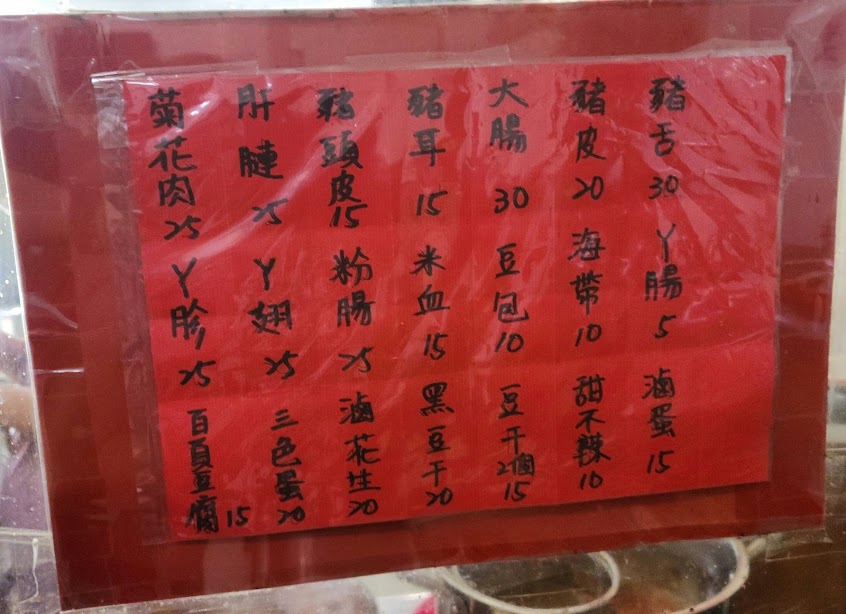 豬舌30
豬皮20
大腸30
豬耳15
豬頭皮15
肝腱25
菊花肉25
丫腸5
海帶10
豆包10
米血15
粉腸25
丫翅25
丫胗25
滷蛋15
甜不辣10
豆干2個15
黑豆干20
滷花生20
三色蛋20
百頁豆腐15